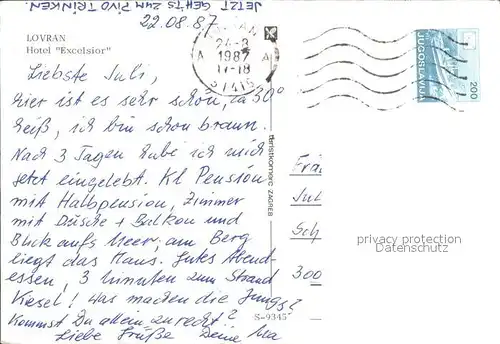 JETZT GEHTS ZUM PIVO TRINKEN.
22.08.87
LOVRAN
Hotel "Excelsior"
Liebste Juli,
hier ist es sehr schön, ca 30°
heiß, ich bin schon braun.
Nach 3 Tagen habe ich mich
jetzt eingelebt. Kl Pension
mit Halbpension, Zimmer
mit Dusche + Balkon und
Blick aufs Meer, am Berg
liegt das Haus. Gutes Abend-
essen, 3 Minuten zum Strand
Kiesel! Was machen die Jungs?
Kommst Du allein zurecht?
Liebe Grüße Deine
S-9345
turistkomerc ZAGREB
1987
17-18
51415
JUGOSLAVIJA
200
Frä
Jul
Sch
300
privacy protection
Datenschutz